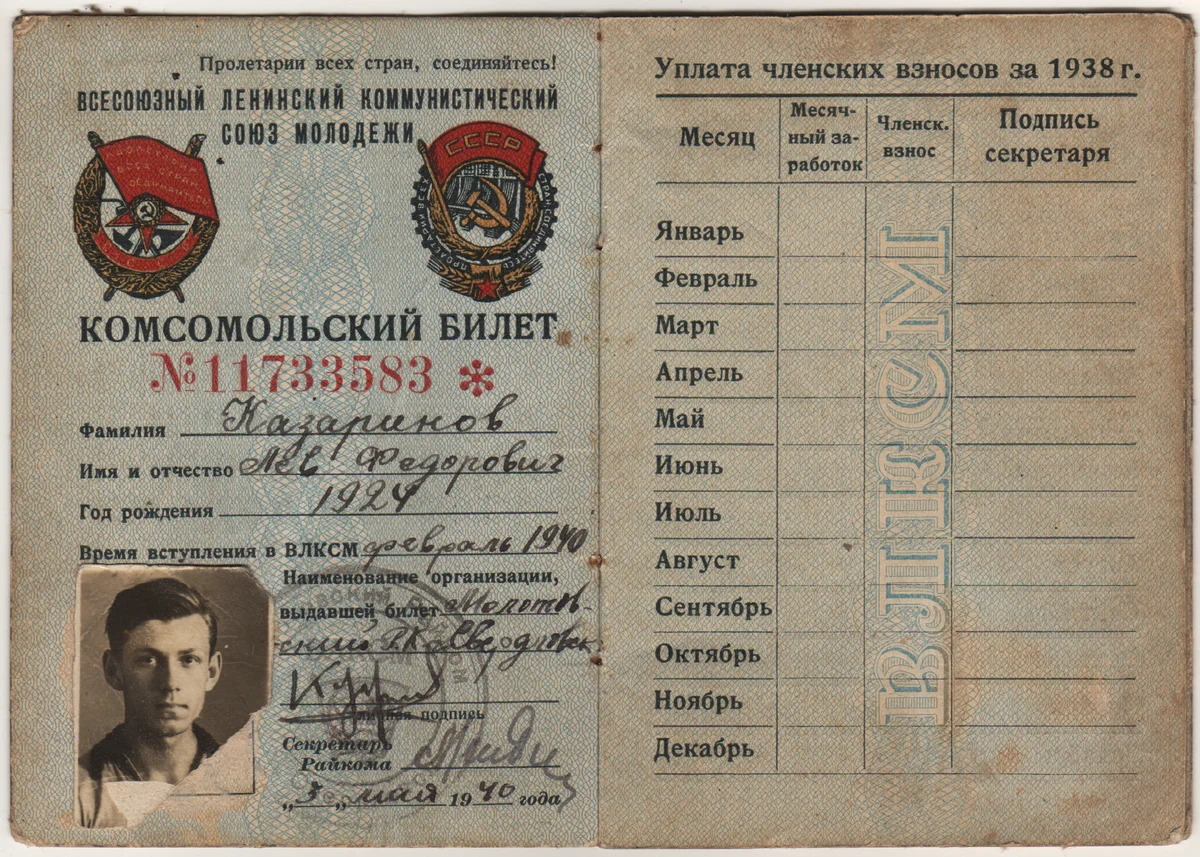 Пролетарии всех стран, соединяйтесь!
ВСЕСОЮЗНЫЙ ЛЕНИНСКИЙ КОММУНИСТИЧЕСКИЙ
СОЮЗ МОЛОДЕЖИ
СССР
КОМСОМОЛЬСКИЙ БИЛЕТ
№11733583 *
Фамилия Казаринов
Имя и отчество Лев Федорович
Год рождения 1924
Время вступления в ВЛКСМ февраль 1940
Наименование организации,
выдавшей билет Молотов-
ский Р.К.
личная подпись
Секретарь
Райкома
„5„ мая 1940 года
Уплата членских взносов за 1938 г.
Месяц
Месяч-
ный за-
работок
Членск.
взнос
Подпись
секретаря
Январь
Февраль
Март
Апрель
Май
Июнь
Июль
Август
Сентябрь
Октябрь
Ноябрь
Декабрь
ВЛКСМ